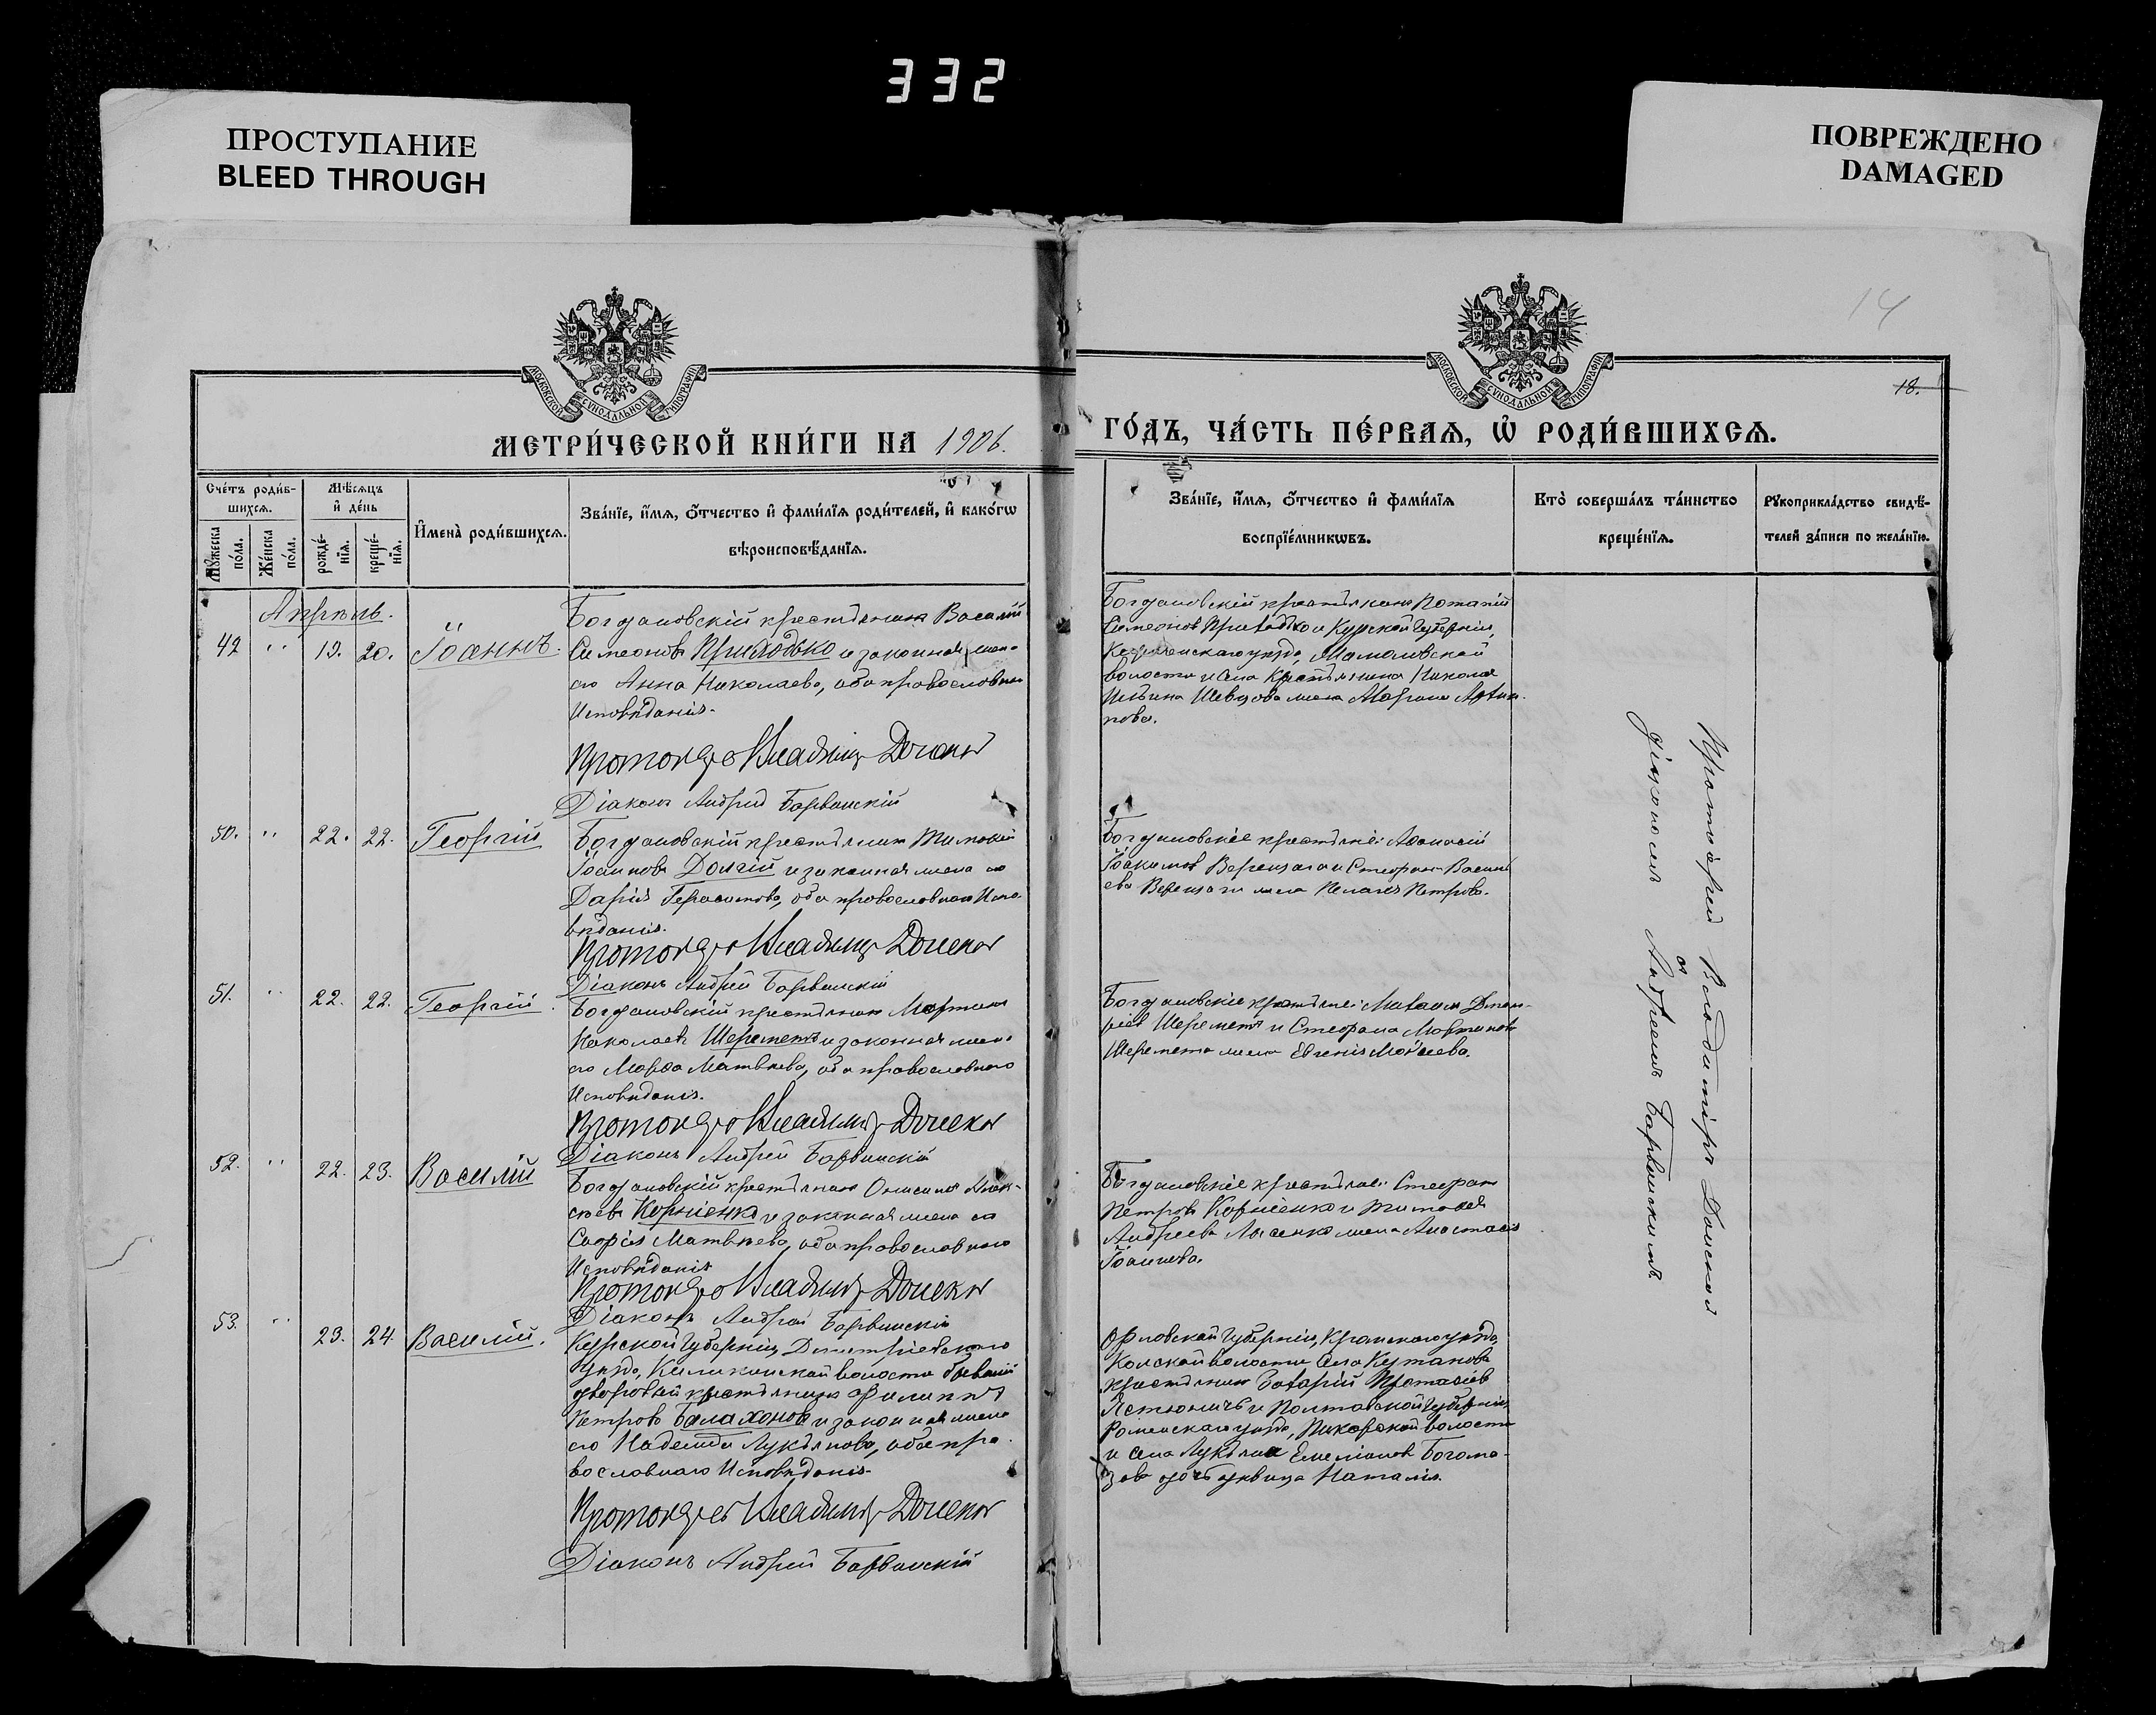 332
ПРОСТУПАНИЕ
BLEED THROUGH
ПОВРЕЖДЕНО
DAMAGED
14
18.
МОСКОВСКОЙ СУНОДАЛЬНОЙ ТИПОГРАФІИ
МОСКОВСКОЙ СУНОДАЛЬНОЙ ТИПОГРАФІИ
МЕТРИ́ЧЕСКОЙ КНИ́ГИ НА 1906.
ГО́ДЪ, ЧА́СТЬ ПЕ́РВАѦ, Ѡ҆ РОДИ́ВШИХСѦ.
Сче́тъ роди́в-
шихсѧ.
Мꙋжеска по́ла.
Же́нска по́ла.
Мѣ́сѧцъ
и҆ де́нь
рожде́-
нїѧ.
креще́-
нїѧ.
И҆мена̀ роди́вшихсѧ.
Зва́нїе, и҆́мѧ, ѻ҆́тчество и҆ фами́лїѧ роди́телей, и҆ како́гѡ
вѣроисповѣ́данїѧ.
Зва́нїе, и҆́мѧ, ѻ҆́тчество и҆ фами́лїѧ
воспрїе́мникѡвъ.
Кто̀ соверша́лъ та́инство
креще́нїѧ.
Рꙋкоприкла́дство свидѣ́-
телей за́писи по жела́нїю.
Апрѣль.
49 " 19. 20. Іоаннъ.
Богдановскій крестьянинъ Василій
Симеоновъ Приходько и законная жена
его Анна Николаева, оба православнаго
Исповѣданія.
Протоіерей Владиміръ Донской
Діаконъ Андрей Барвинскій
Богдановскій крестьянинъ Потапій
Симеоновъ Приходько и Курской Губерніи,
уѣзда,
волости и села Крестьянина Николая
Ильина Шевцова жена
50. " 22. 22. Георгій
Богдановскій крестьянинъ Тимофей
Іоанновъ Долгій и законная жена его
Дарія Герасимова, оба православнаго Испо-
вѣданія.
Протоіерей Владиміръ Донской
Діаконъ Андрей Барвинскій
Богдановскіе крестьяне: Афанасій
Іоакимовъ и Стефана Василь
ева жена Пелагія Петрова.
51. " 22. 22. Георгій.
Богдановскій крестьянинъ Мартинъ
Николаевъ Шереметъ и законная жена
его Марфа Матвѣева, оба православнаго
Исповѣданія.
Протоіерей Владиміръ Донской
Діаконъ Андрей Барвинскій
Богдановскіе крестьяне: Михаилъ Дмит-
ріевъ Шереметъ и Стефана Мартинова
Шеремета жена Евгенія Моисеева.
52. " 22. 23. Василій
Богдановскій крестьянинъ Онисимъ Алек-
сѣевъ Корніенко и законная жена его
Софія Матвѣева, оба православнаго
Исповѣданія
Протоіерей Владиміръ Донской
Діаконъ Андрей Барвинскій
Богдановскіе крестьяне: Стефанъ
Петровъ Корніенко и Тимофея
Андреева Лысенко жена Анастасія
Іоаннова.
53. " 23. 24. Василій.
Курской Губерніи, Дмитріевскаго
уѣзда, волости бывшій
дворовый крестьянинъ Филиппъ
Петровъ Балахоновъ и законная жена
его Надежда Лукьянова, оба пра-
вославнаго Исповѣданія.
Протоіерей Владиміръ Донской
Діаконъ Андрей Барвинскій
Орловской Губерніи, уѣзда,
волости села
крестьянинъ Захарій
и Полтавской Губерніи,
Роменскаго уѣзда, волости
и села Лукьяна Емеліанова Богома-
зова дочь дѣвица Наталія.
Протоіерей Владиміръ Донской
съ
діакономъ Андреемъ Барвинскимъ